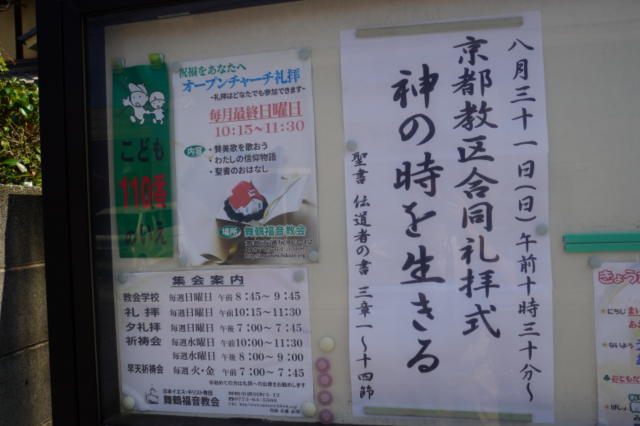 八月三十一日(日)午前十時三十分〜
京都教区合同礼拝式
神の時を生きる
聖書 伝道者の書 三章一〜十四節
こども
110番
のいえ
祝福をあなたへ
オープンチャーチ礼拝
~礼拝はどなたでも参加できます~
毎月最終日曜日
10:15〜11:30
内容
・賛美歌を歌おう
・わたしの信仰物語
・聖書のおはなし
場所 舞鶴福音教会
集会案内
教会学校 毎週日曜日 午前 8:45〜9:45
礼拝 毎週日曜日 午前10:15〜11:30
夕礼拝 毎週日曜日 午後 7:00〜7:45
祈祷会 毎週水曜日 午前10:00〜11:30
毎週水曜日 午後 8:00〜9:00
早天祈祷会 毎週火・金 午前 7:00〜7:45
※初めての方は礼拝への出席をお勧めします
日本イエス・キリスト教団
舞鶴福音教会
きょう